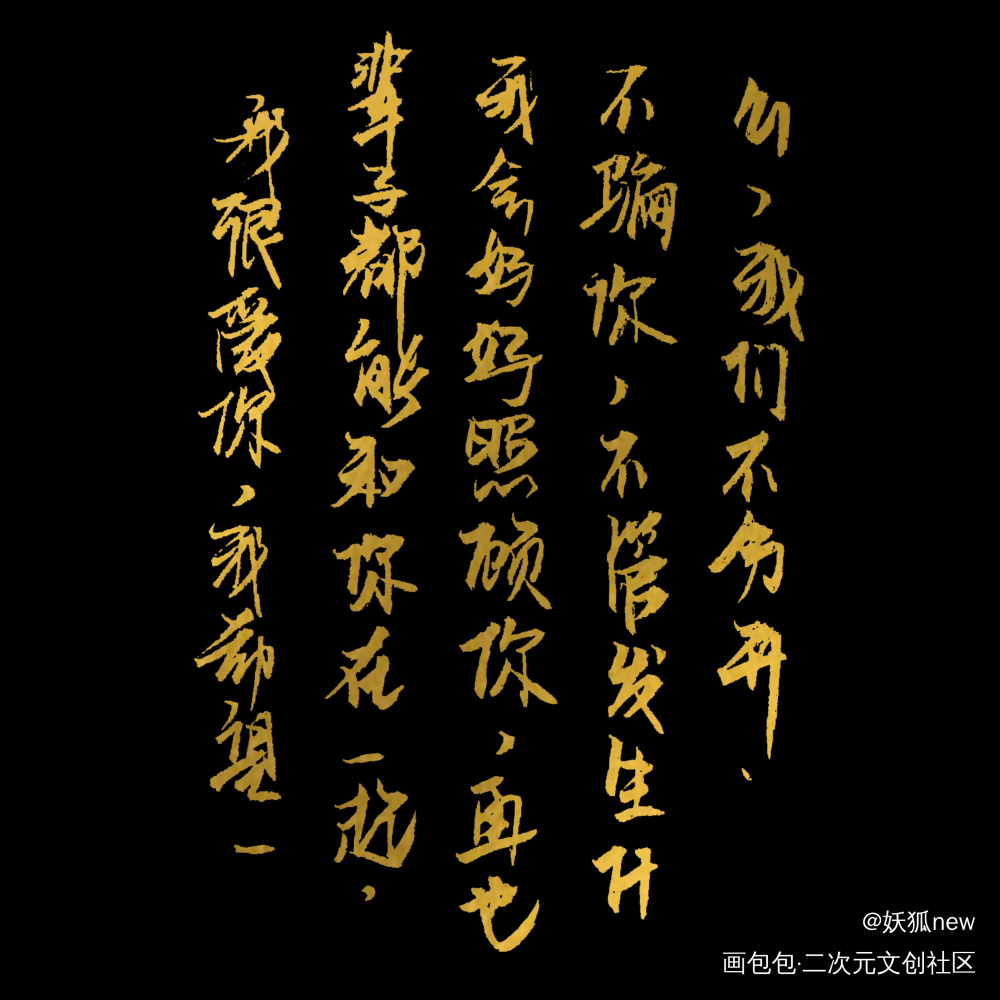 我很爱你，我希望一
辈子都能和你在一起，
我会好好照顾你，再也
不骗你，不管发生什
么，我们不分开.
@妖狐new
画包包·二次元文创社区